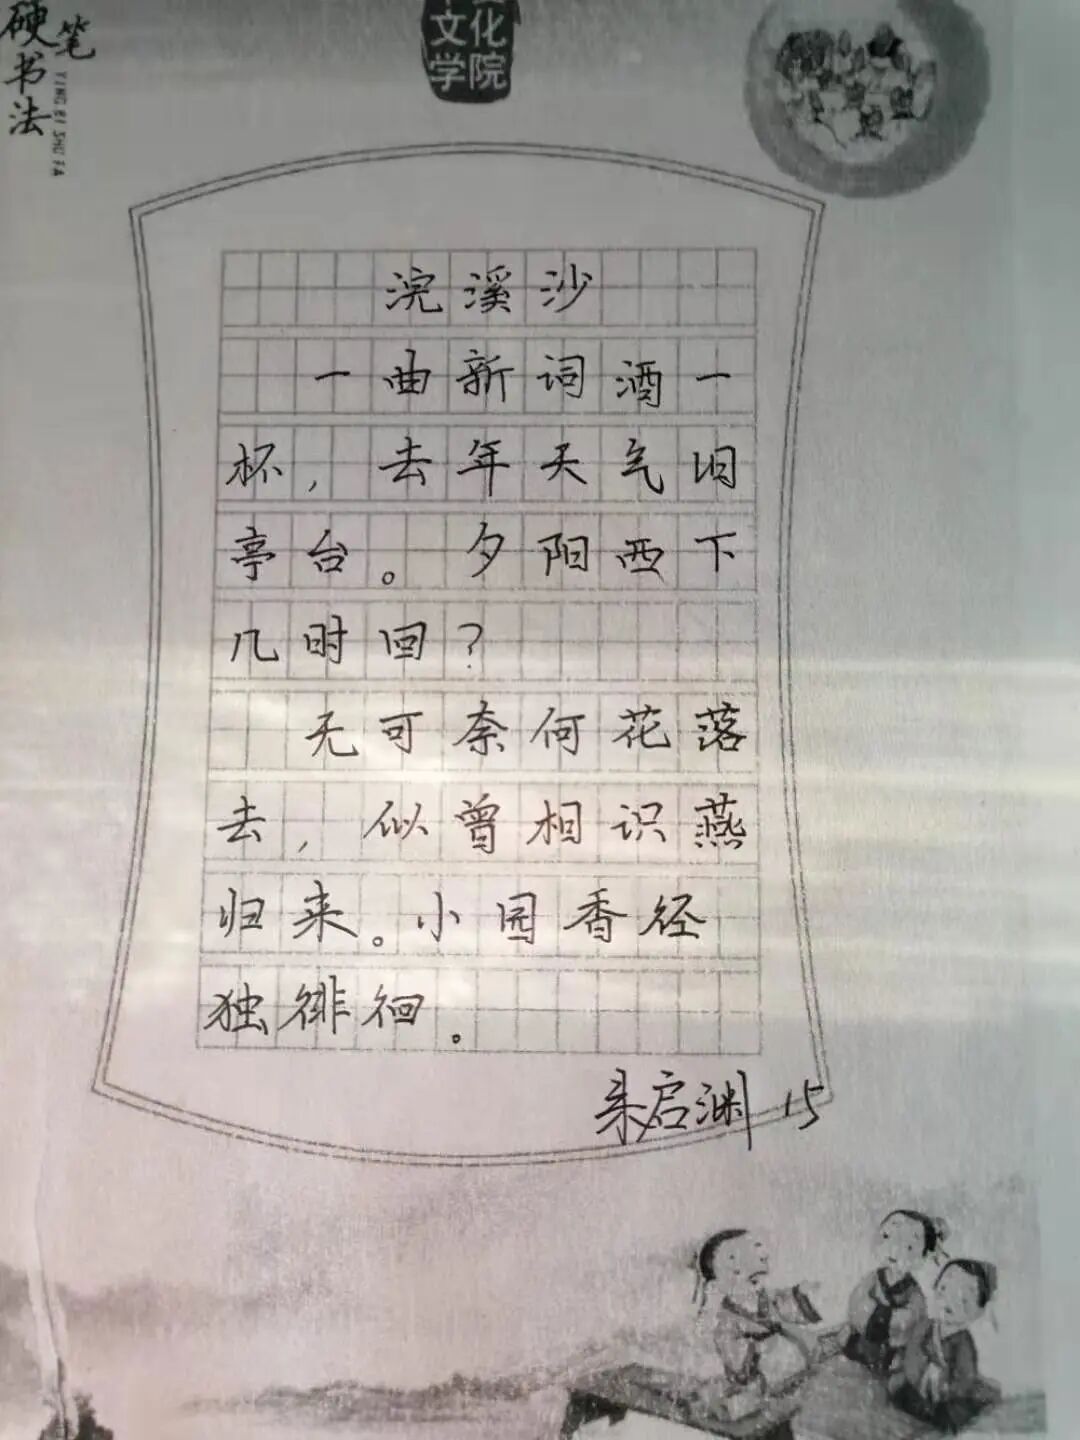 硬笔书法
YING BI SHU FA
文化
学院
浣溪沙
一曲新词酒一
杯，去年天气旧
亭台。夕阳西下
几时回？
无可奈何花落
去，似曾相识燕
归来。小园香径
独徘徊。
启渊 15